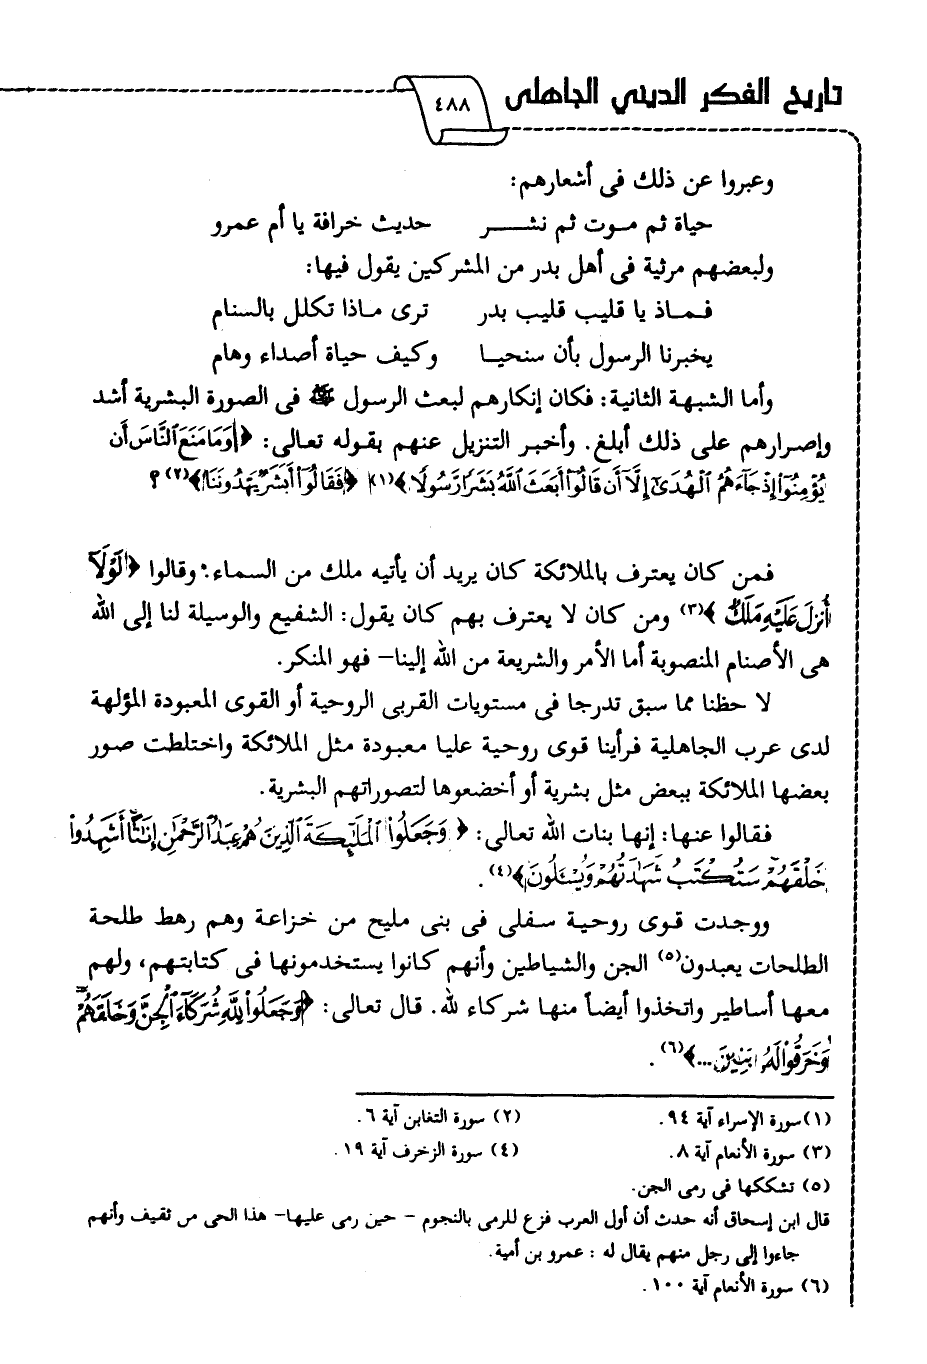 تاريخ الفكر الديني الجاهلى
٤٨٨
وعبروا عن ذلك فى أشعارهم:
حياة ثم مـوت ثم نشـــــر حديث خرافة يا أم عمرو
ولبعضهم مرثية فى أهل بدر من المشركين يقول فيها:
فـمـاذ يا قليب قليب بدر ترى مـاذا تكلل بالسنام
يخبرنا الرسول بأن سنحيـا وكيف حياة أصداء وهام
وأما الشبهة الثانية: فكان إنكارهم لبعث الرسول ﷺ فى الصورة البشرية أشد
وإصرارهم على ذلك أبلغ. وأخبر التنزيل عنهم بقوله تعالى: ﴿وَمَا مَنَعَ النَّاسَ أَن
يُؤْمِنُوٓا۟ إِذْ جَآءَهُمُ ٱلْهُدَىٰٓ إِلَّآ أَن قَالُوٓا۟ أَبَعَثَ ٱللَّهُ بَشَرًا رَّسُولًا﴾(١) ﴿فَقَالُوٓا۟ أَبَشَرٌ يَهْدُونَنَا﴾(٢) ؟
فمن كان يعترف بالملائكة كان يريد أن يأتيه ملك من السماء: وقالوا ﴿لَوْلَآ
أُنزِلَ عَلَيْهِ مَلَكٌ﴾(٣) ومن كان لا يعترف بهم كان يقول: الشفيع والوسيلة لنا إلى الله
هى الأصنام المنصوبة أما الأمر والشريعة من الله إلينا- فهو المنكر.
لا حظنا مما سبق تدرجا فى مستويات القربى الروحية أو القوى المعبودة المؤلهة
لدى عرب الجاهلية فرأينا قوى روحية عليا معبودة مثل الملائكة واختلطت صور
بعضها الملائكة ببعض مثل بشرية أو أخضعوها لتصوراتهم البشرية.
فقالوا عنها: إنها بنات الله تعالى: ﴿وَجَعَلُوا۟ ٱلْمَلَـٰٓئِكَةَ ٱلَّذِينَ هُمْ عِبَـٰدُ ٱلرَّحْمَـٰنِ إِنَـٰثًا أَشَهِدُوا۟
خَلْقَهُمْ سَتُكْتَبُ شَهَـٰدَتُهُمْ وَيُسْـَٔلُونَ﴾(٤) .
ووجدت قوى روحية سفلى فى بنى مليح من خزاعة وهم رهط طلحة
الطلحات يعبدون(٥) الجن والشياطين وأنهم كانوا يستخدمونها فى كتابتهم، ولهم
معها أساطير واتخذوا أيضاً منها شركاء لله. قال تعالى: ﴿وَجَعَلُوا۟ لِلَّهِ شُرَكَآءَ ٱلْجِنَّ وَخَلَقَهُمْ
وَخَرَقُوا۟ لَهُۥ بَنِينَ ...﴾(٦) .
(١) سورة الإسراء آية ٩٤. (٢) سورة التغابن آية ٦.
(٣) سورة الأنعام آية ٨. (٤) سورة الزخرف آية ١٩.
(٥) تشككها فى رمى الجن.
قال ابن إسحاق أنه حدث أن أول العرب فزع للرمى بالنجوم - حين رمى عليها- هذا الحى من ثقيف وأنهم
جاءوا إلى رجل منهم يقال له : عمرو بن أمية.
(٦) سورة الأنعام آية ١٠٠.